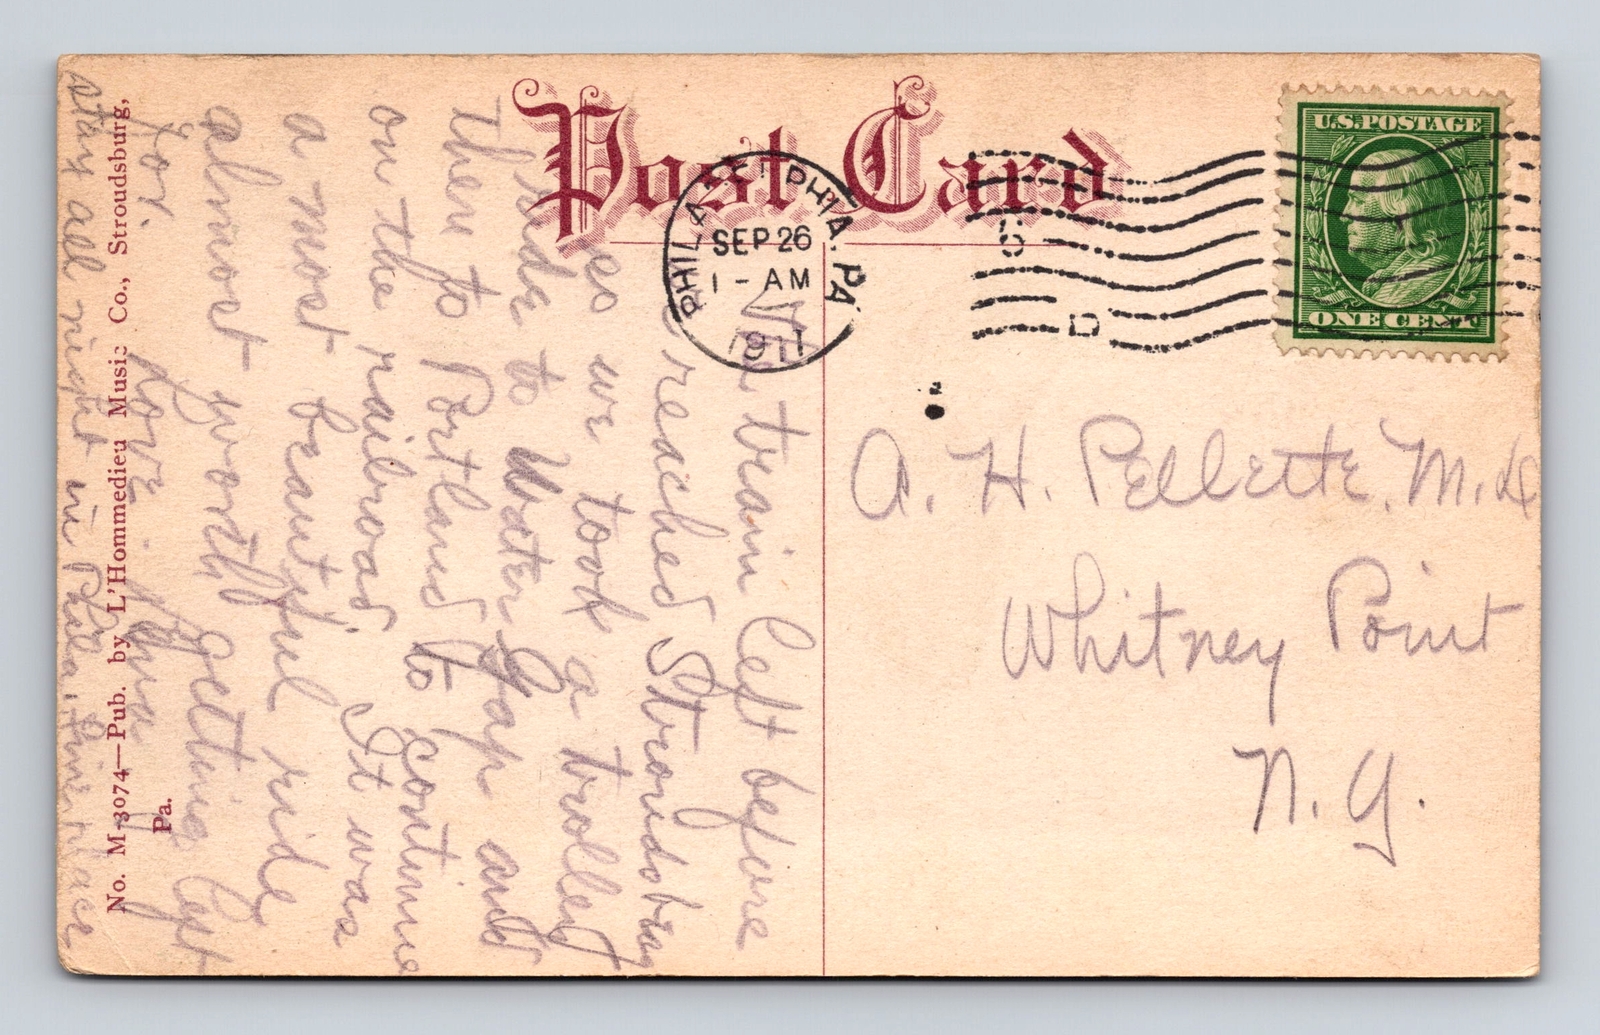 Post Card
PHILADELPHIA. PA
SEP 26
1 - AM
1911
5
D
U.S. POSTAGE
ONE CENT
A. H. Pellette, M.D
Whitney Point
N. Y.
The train left before
reached Stroudsburg
so we took a trolley
ride to Water Gap and
then to Portland to continue
on the railroad. It was
a most beautiful ride
almost worth getting left
for. Love.
Stay all night in Phila,
No. M-3074—Pub. by L'Hommedieu Music Co., Stroudsburg,
Pa.